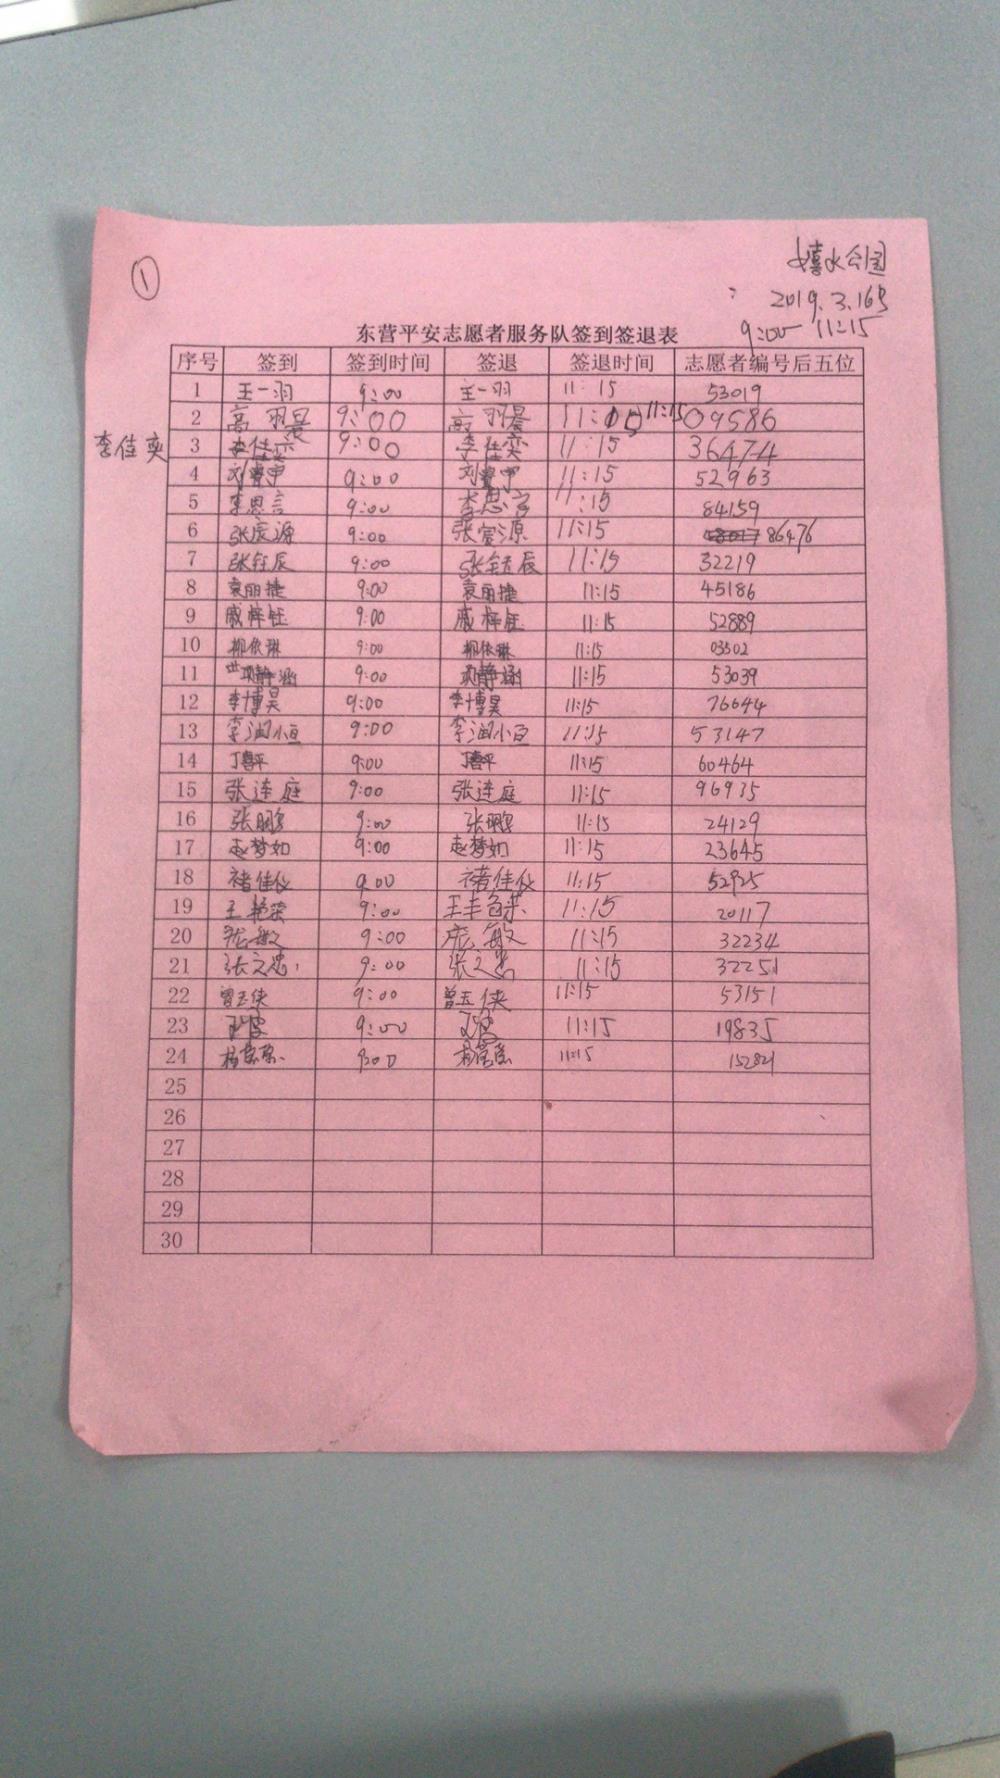 ①
嬉水公园
2019.3.16号
9:00 11:15
东营平安志愿者服务队签到签退表
序号 签到 签到时间 签退 签退时间 志愿者编号后五位
1 王一羽 9:00 王一羽 11:15 53019
2 高羽晨 9:00 高羽晨 11:15 09586
李佳奕 3 李佳奕 9:00 李佳奕 11:15 36474
4 9:00 11:15 52963
5 李思言 9:00 李思言 11:15 84159
6 张宸源 9:00 张宸源 11:15 86476
7 张钰辰 9:00 张钰辰 11:15 32219
8 袁丽捷 9:00 袁丽捷 11:15 45186
9 戚梓钰 9:00 戚梓钰 11:15 52889
10 柳依琳 9:00 柳依琳 11:15 03502
11 9:00 11:15 53039
12 李博昊 9:00 李博昊 11:15 76644
13 李润恒 9:00 李润恒 11:15 53147
14 9:00 11:15 60464
15 张连庭 9:00 张连庭 11:15 96935
16 张鹏 9:00 张鹏 11:15 24129
17 赵梦如 9:00 赵梦如 11:15 23645
18 褚佳仪 9:00 褚佳仪 11:15 52925
19 王艳荣 9:00 王艳荣 11:15 20117
20 庞敏 9:00 庞敏 11:15 32234
21 张文忠 9:00 张文忠 11:15 32251
22 曾玉侠 9:00 曾玉侠 11:15 53151
23 9:00 11:15 19835
24 9:00 11:15 152821
25
26
27
28
29
30